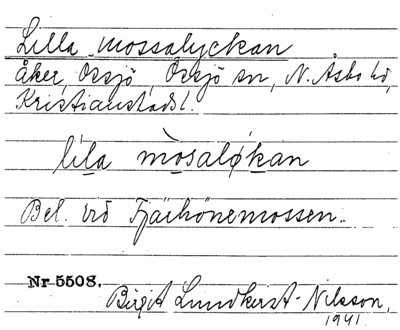 Lilla mossalyckan
åker, Össjö, Össjö sn, N. Åsbo hd,
Kristianstads l.
lila mòsaløkan
Bel. vid Fjärhönemossen.
Nr 5508.
Birgit Lundkvist-Nilsson,
1941